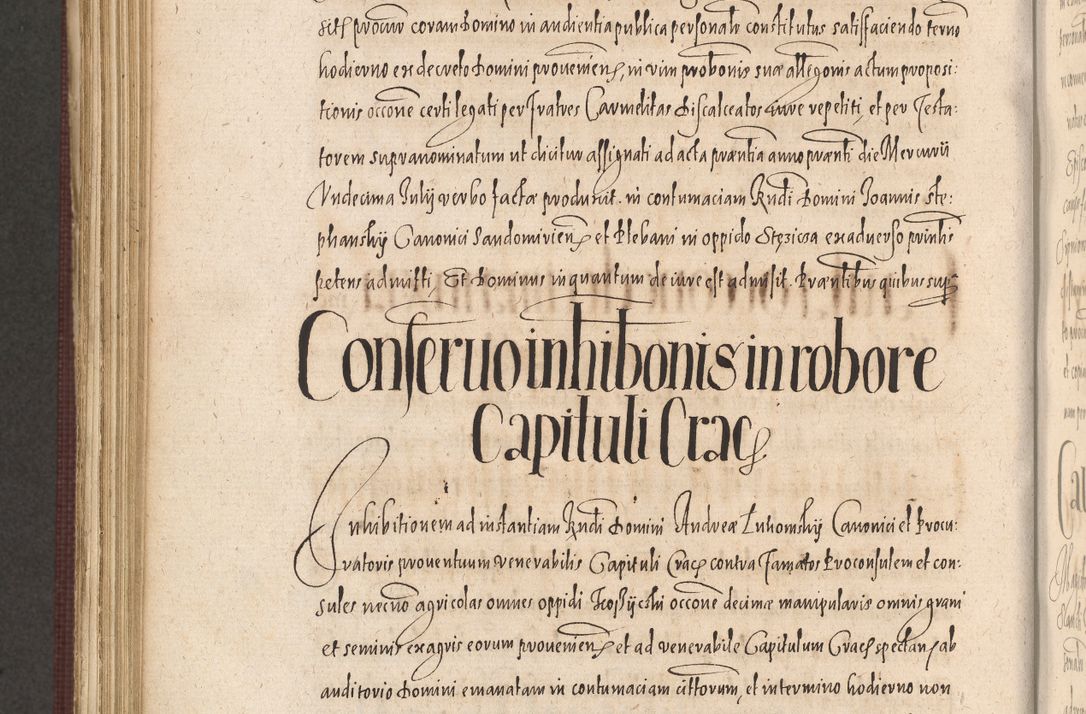 sitꝭ procur coram Domino in audientia publica personalr constitutus satisfaciendo termo
hodierno ex decreto Domini proveniens, in vim probonis suæ allegonis actum proposi:
tionis occone certi legati per Fratres Carmelitas Discalceatos iure repetiti, et per Testa:
torem supranominatum ut dicitur assignati ad acta præntia anno prænti die Mercurij
Undecima Julij verbo factæ produxit. in contumaciam Rndi Domini Joannis Ste:
phanskij Canonici Sandomiriens et Plebani in oppido Stęzicza ex adverso prinlis
petens admitti, Et Dominus in quantum de iure est admisit. Præntibus quibus sup
Conseruo inhibonis in robore
Capituli Crac
Inhibitionem ad instantiam Rndi Domini Andreæ Luhomskij Canonici et Procu:
ratoris proventuum venerabilis Capituli Crac contra Famatos Proconsulem et con:
sules necno agricolas omnes oppidi occone decimæ manipularis omnis grani
et seminis ex agris eorum proveniens et ad venerabile Capitulum Crac spectan ab
auditorio Domini emanatam in contumaciam cittorum, et in termino hodierno non